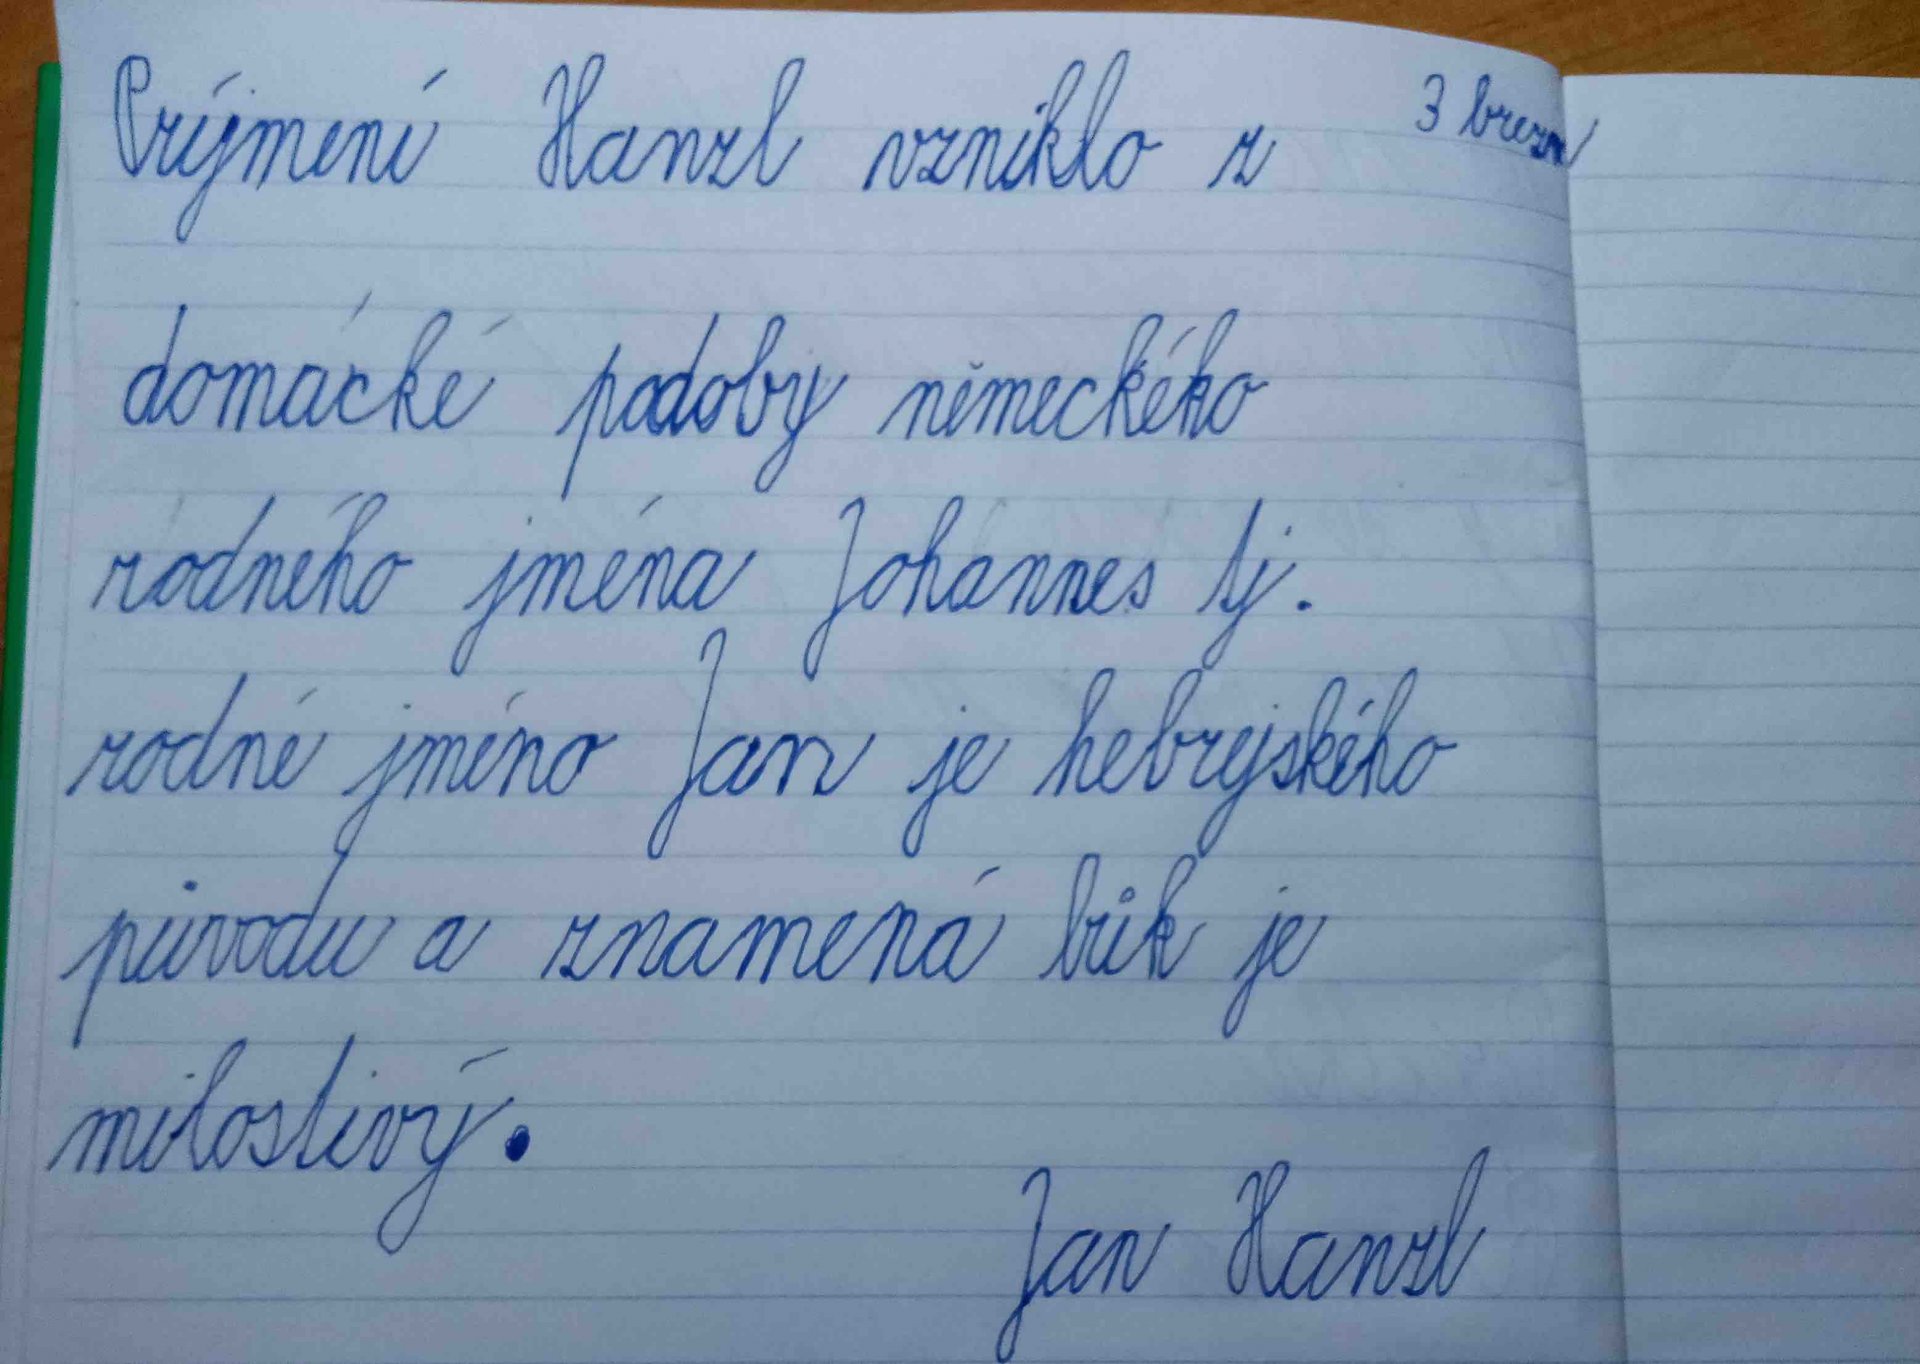 Príjmení Hanzl vzniklo z
3 březn
domácké podoby německého
rodného jména Johannes tj.
rodné jméno Jan je hebrejského
původu a znamená bůh je
milostivý.
Jan Hanzl